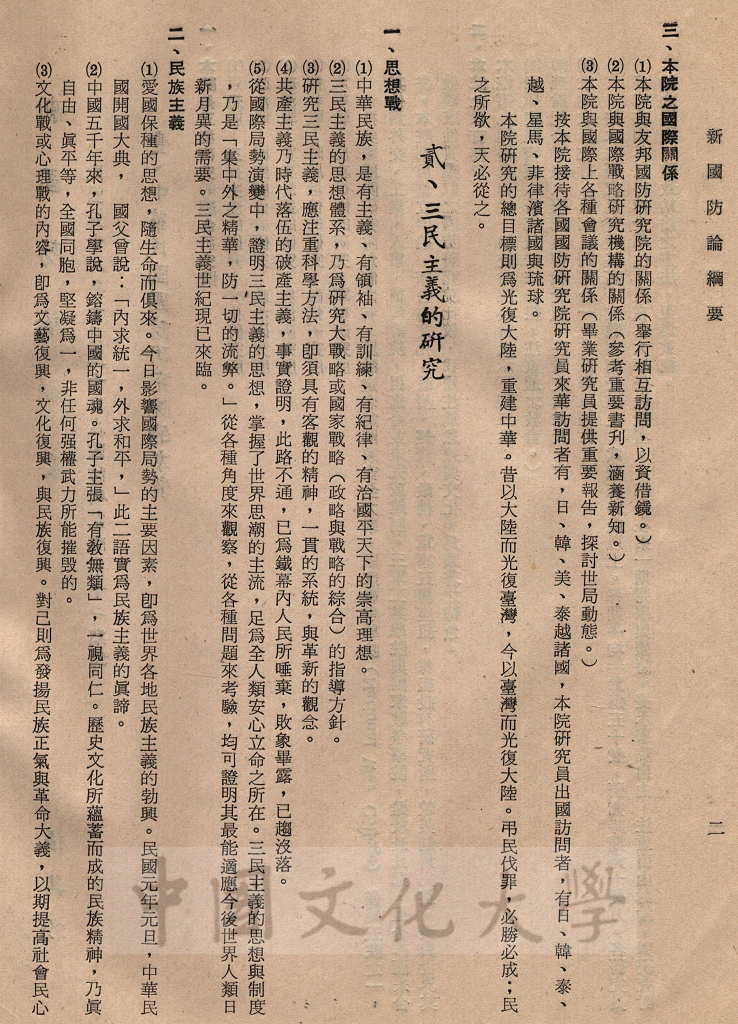 新國防論綱要
二
三、本院之國際關係
⑴本院與友邦國防研究院的關係（舉行相互訪問，以資借鏡。）
⑵本院與國際戰略研究機構的關係（參考重要書刊，涵養新知。）
⑶本院與國際上各種會議的關係（畢業研究員提供重要報告，探討世局動態。）
按本院接待各國國防研究院研究員來華訪問者有，日、韓、美、泰越諸國，本院研究員出國訪問者，有日、韓、泰、
越、星馬、菲律濱諸國與琉球。
本院研究的總目標則爲光復大陸，重建中華。昔以大陸而光復臺灣，今以臺灣而光復大陸。弔民伐罪，必勝必成；民
之所欲，天必從之。
貳、三民主義的研究
一、思想戰
⑴中華民族，是有主義、有領袖、有訓練、有紀律、有治國平天下的崇高理想。
⑵三民主義的思想體系，乃爲研究大戰略或國家戰略（政略與戰略的綜合）的指導方針。
⑶研究三民主義，應注重科學方法，卽須具有客觀的精神，一貫的系統，與革新的觀念。
⑷共產主義乃時代落伍的破產主義，事實證明，此路不通，已爲鐵幕內人民所唾棄，敗象畢露，已趨沒落。
⑸從國際局勢演變中，證明三民主義的思想，掌握了世界思潮的主流，足爲全人類安心立命之所在。三民主義的思想與制度
，乃是「集中外之精華，防一切的流弊。」從各種角度來觀察，從各種問題來考驗，均可證明其最能適應今後世界人類日
新月異的需要。三民主義世紀現已來臨。
二、民族主義
⑴愛國保種的思想，隨生命而俱來。今日影響國際局勢的主要因素，卽爲世界各地民族主義的勃興。民國元年元旦，中華民
國開國大典，　國父曾說：「內求統一，外求和平，」此二語實爲民族主義的眞諦。
⑵中國五千年來，孔子學說，鎔鑄中國的國魂。孔子主張「有敎無類」，一視同仁。歷史文化所蘊蓄而成的民族精神，乃眞
自由、眞平等，全國同胞，堅凝爲一，非任何强權武力所能摧毀的。
⑶文化戰或心理戰的內容，卽爲文藝復興，文化復興，與民族復興。對己則爲發揚民族正氣與革命大義，以期提高社會民心
中國文化大學